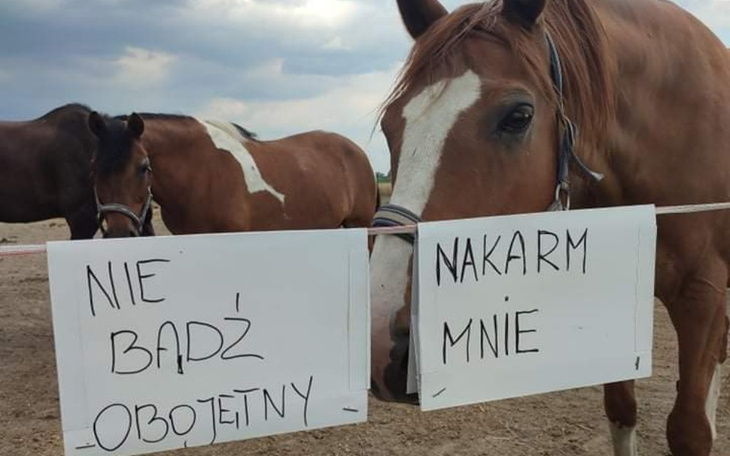 NIE
BĄDŹ
OBOJĘTNY
NAKARM
MNIE